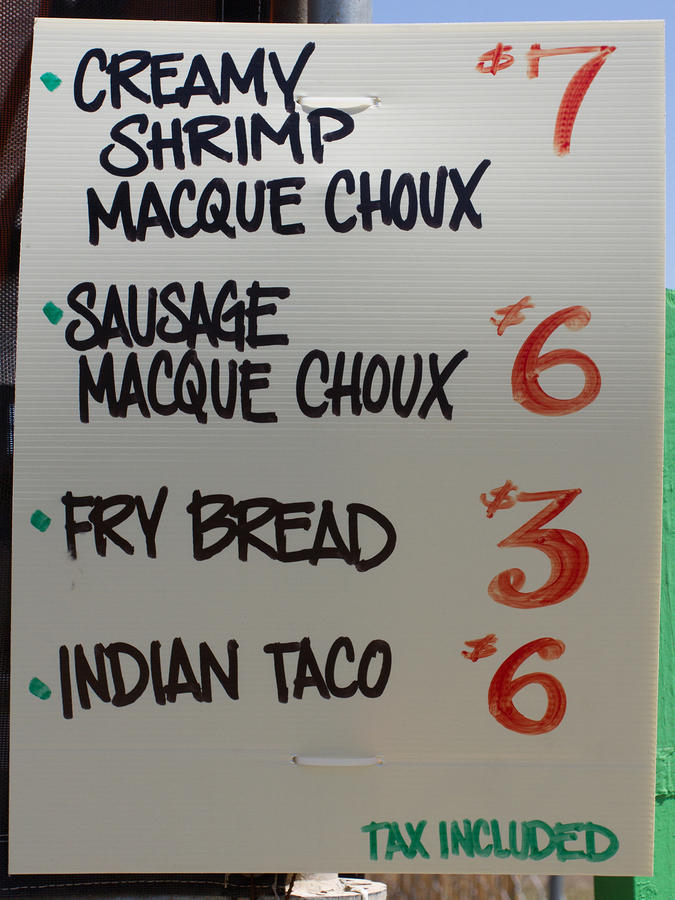 CREAMY $7
SHRIMP
MACQUE CHOUX
SAUSAGE
MACQUE CHOUX $6
FRY BREAD $3
INDIAN TACO $6
TAX INCLUDED